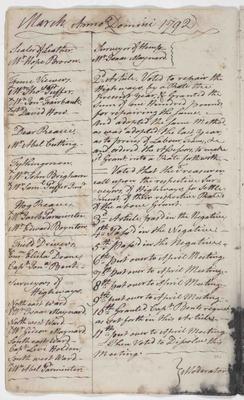 March Anno Domini 1792
Sealer of Leather
Mr Hope Brown.
Fence Viewers
Mr Thos Puffer.
Mr Jon Fairbank
Mr David How
Deer Reeves
Mr Abel Cutting
Tythingmen
Mr John Brigham
Mr Saml Puffer
Hog Reeves
Mr Jacob Parmenter
Mr Edward Boynton
Field Drivers
Ens Elisha Downes
Capt Jona Bent
Surveyors of
Highways
North east Ward
Mr Isaac Maynard
North west Ward
Mr Gideon Maynard
South east Ward
Capt Levi Holden
South west Ward
Mr Abel Parmenter
Surveyor of Hemp
Mr Isaac Maynard
2d Article Voted to repair the
Highways by a Rate the
Ensuing year, & granted the
Sum of One Hundred pounds
for repairing the same.
And adopted the Same Method
as was adopted the last year
as to prices of Labour, Teams, &c
and ordered the assessors to make
sd Grant into a Rate forthwith
Voted that the treasurer
call upon the respective Sur-
veyors of Highways for Settle-
ment of their respective Rates
of the above Grant
3d Article Passed in the Negative
4th Passed in the Negative
5th Passed in the Negative,
6th put over to April Meeting
7th put over to April Meeting
8th put over to April Meeting
9th put over to April Meeting
10th Granted Capt Bents request
as Set forth in this Article
11th put over to April Meeting
Then Voted to Disolve this
Meeting.
Moderator